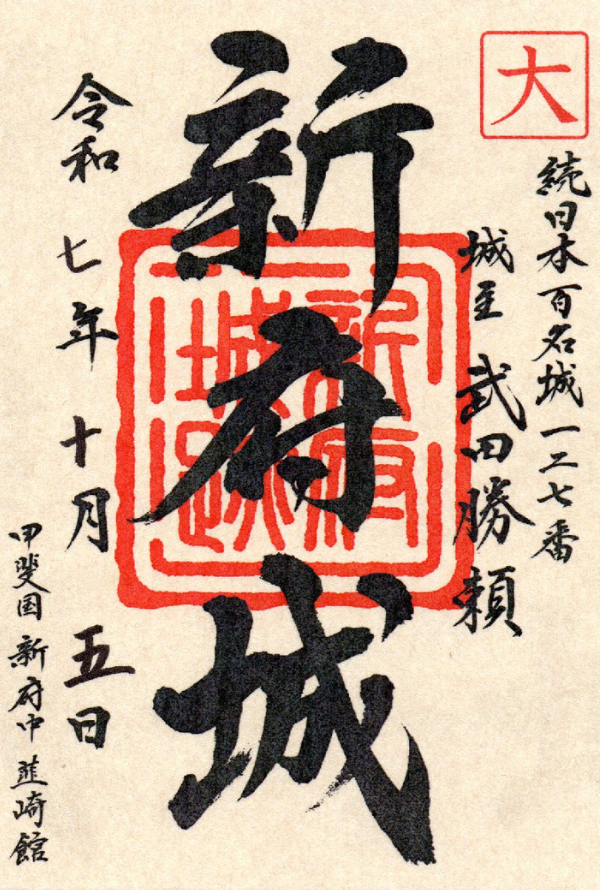 大
続日本百名城一二七番
城主 武田勝頼
新府城
新府城跡
令和 七年 十月 五日
甲斐国 新府中 韮崎館